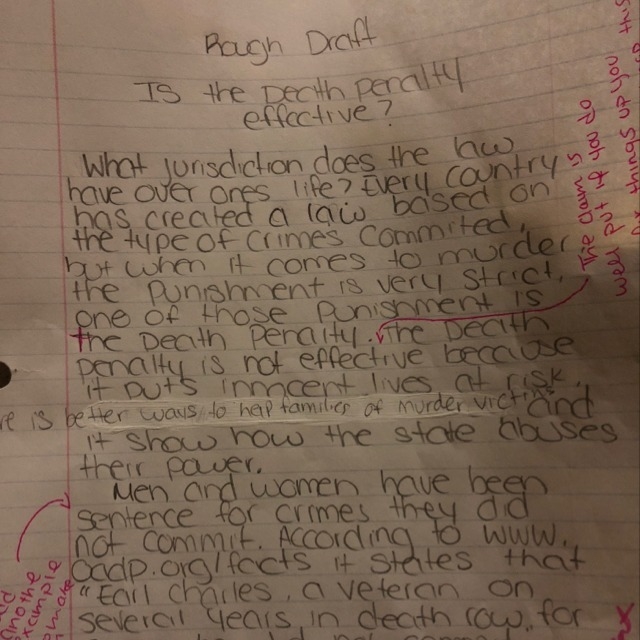 Rough Draft
Is the Death Penalty
effective?
What jurisdiction does the law
have over ones life? Every country
has created a law based on
the type of crimes commited,
but when it comes to murder
the punishment is very strict,
one of those punishment is
the Death Penalty. The Death
penalty is not effective because
it puts innocent lives at risk,
re is better ways to help families of murder vict and
it show how the state abuses
their power.
Men and women have been
sentence for crimes they did
not commit. According to www.
oadp.org/facts it states that
"Earl Charles, a veteran on
several years in death row, for
The claim is
well put if you do
things up you this
example